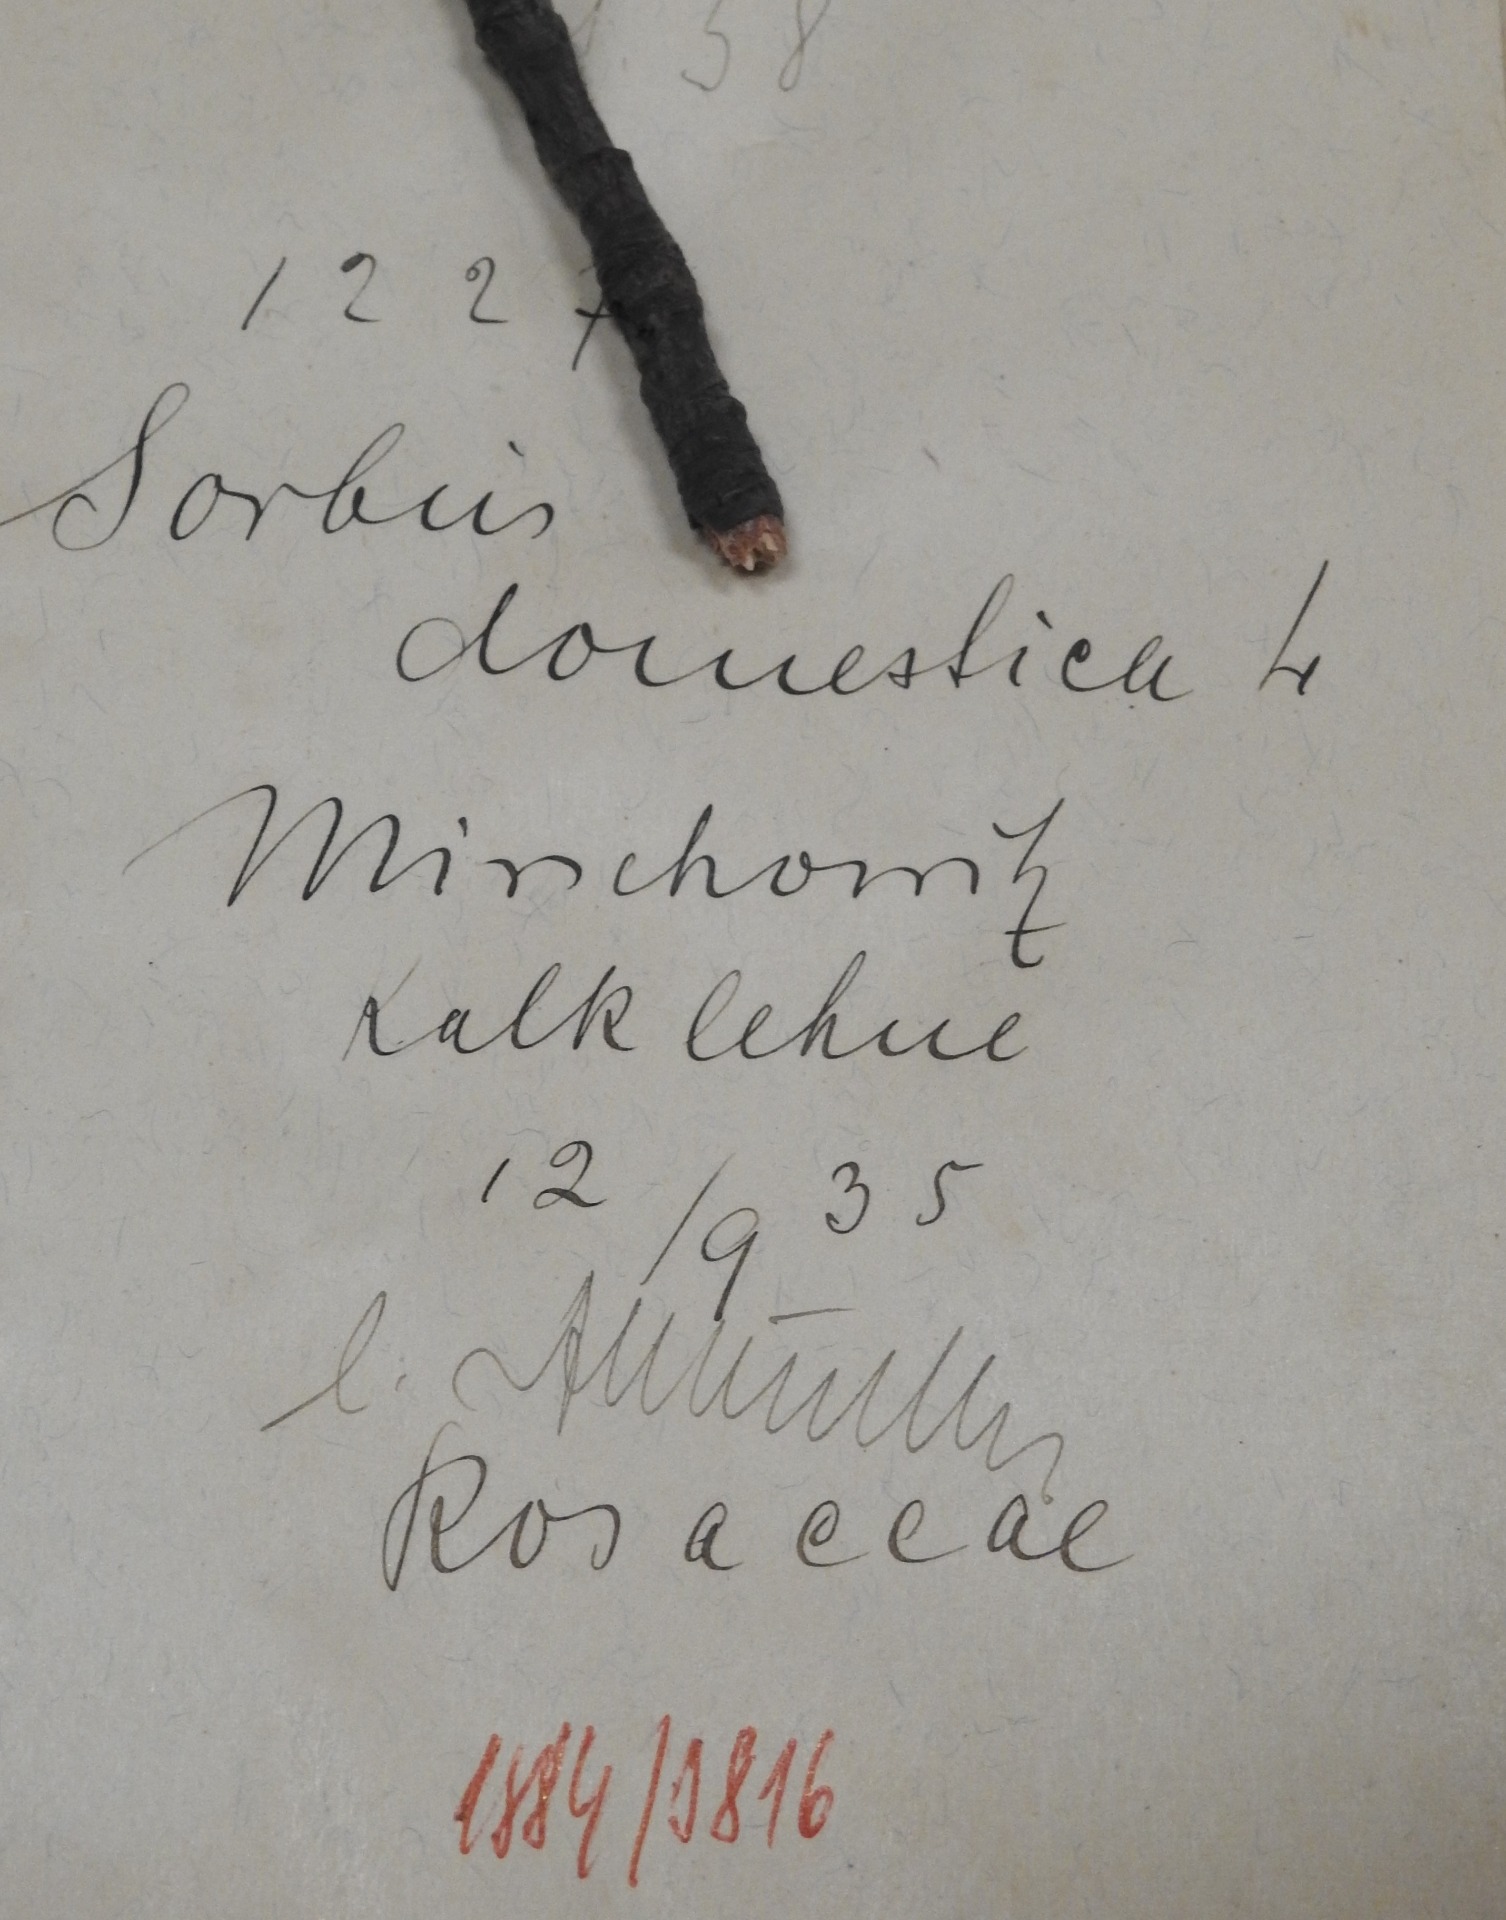 58
1227
Sorbus
domestica L
Mirschowitz
Kalklehne
12/9 35
l. A Müller
Rosaceae
1884/9816